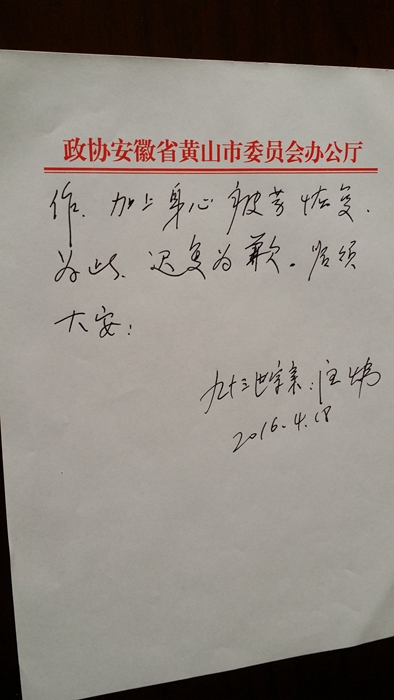 政协安徽省黄山市委员会办公厅
作、加上身心疲劳恢复、
为此、迟复为歉。皆颂
大安：
九十三世宗亲：汪炜
2016.4.18